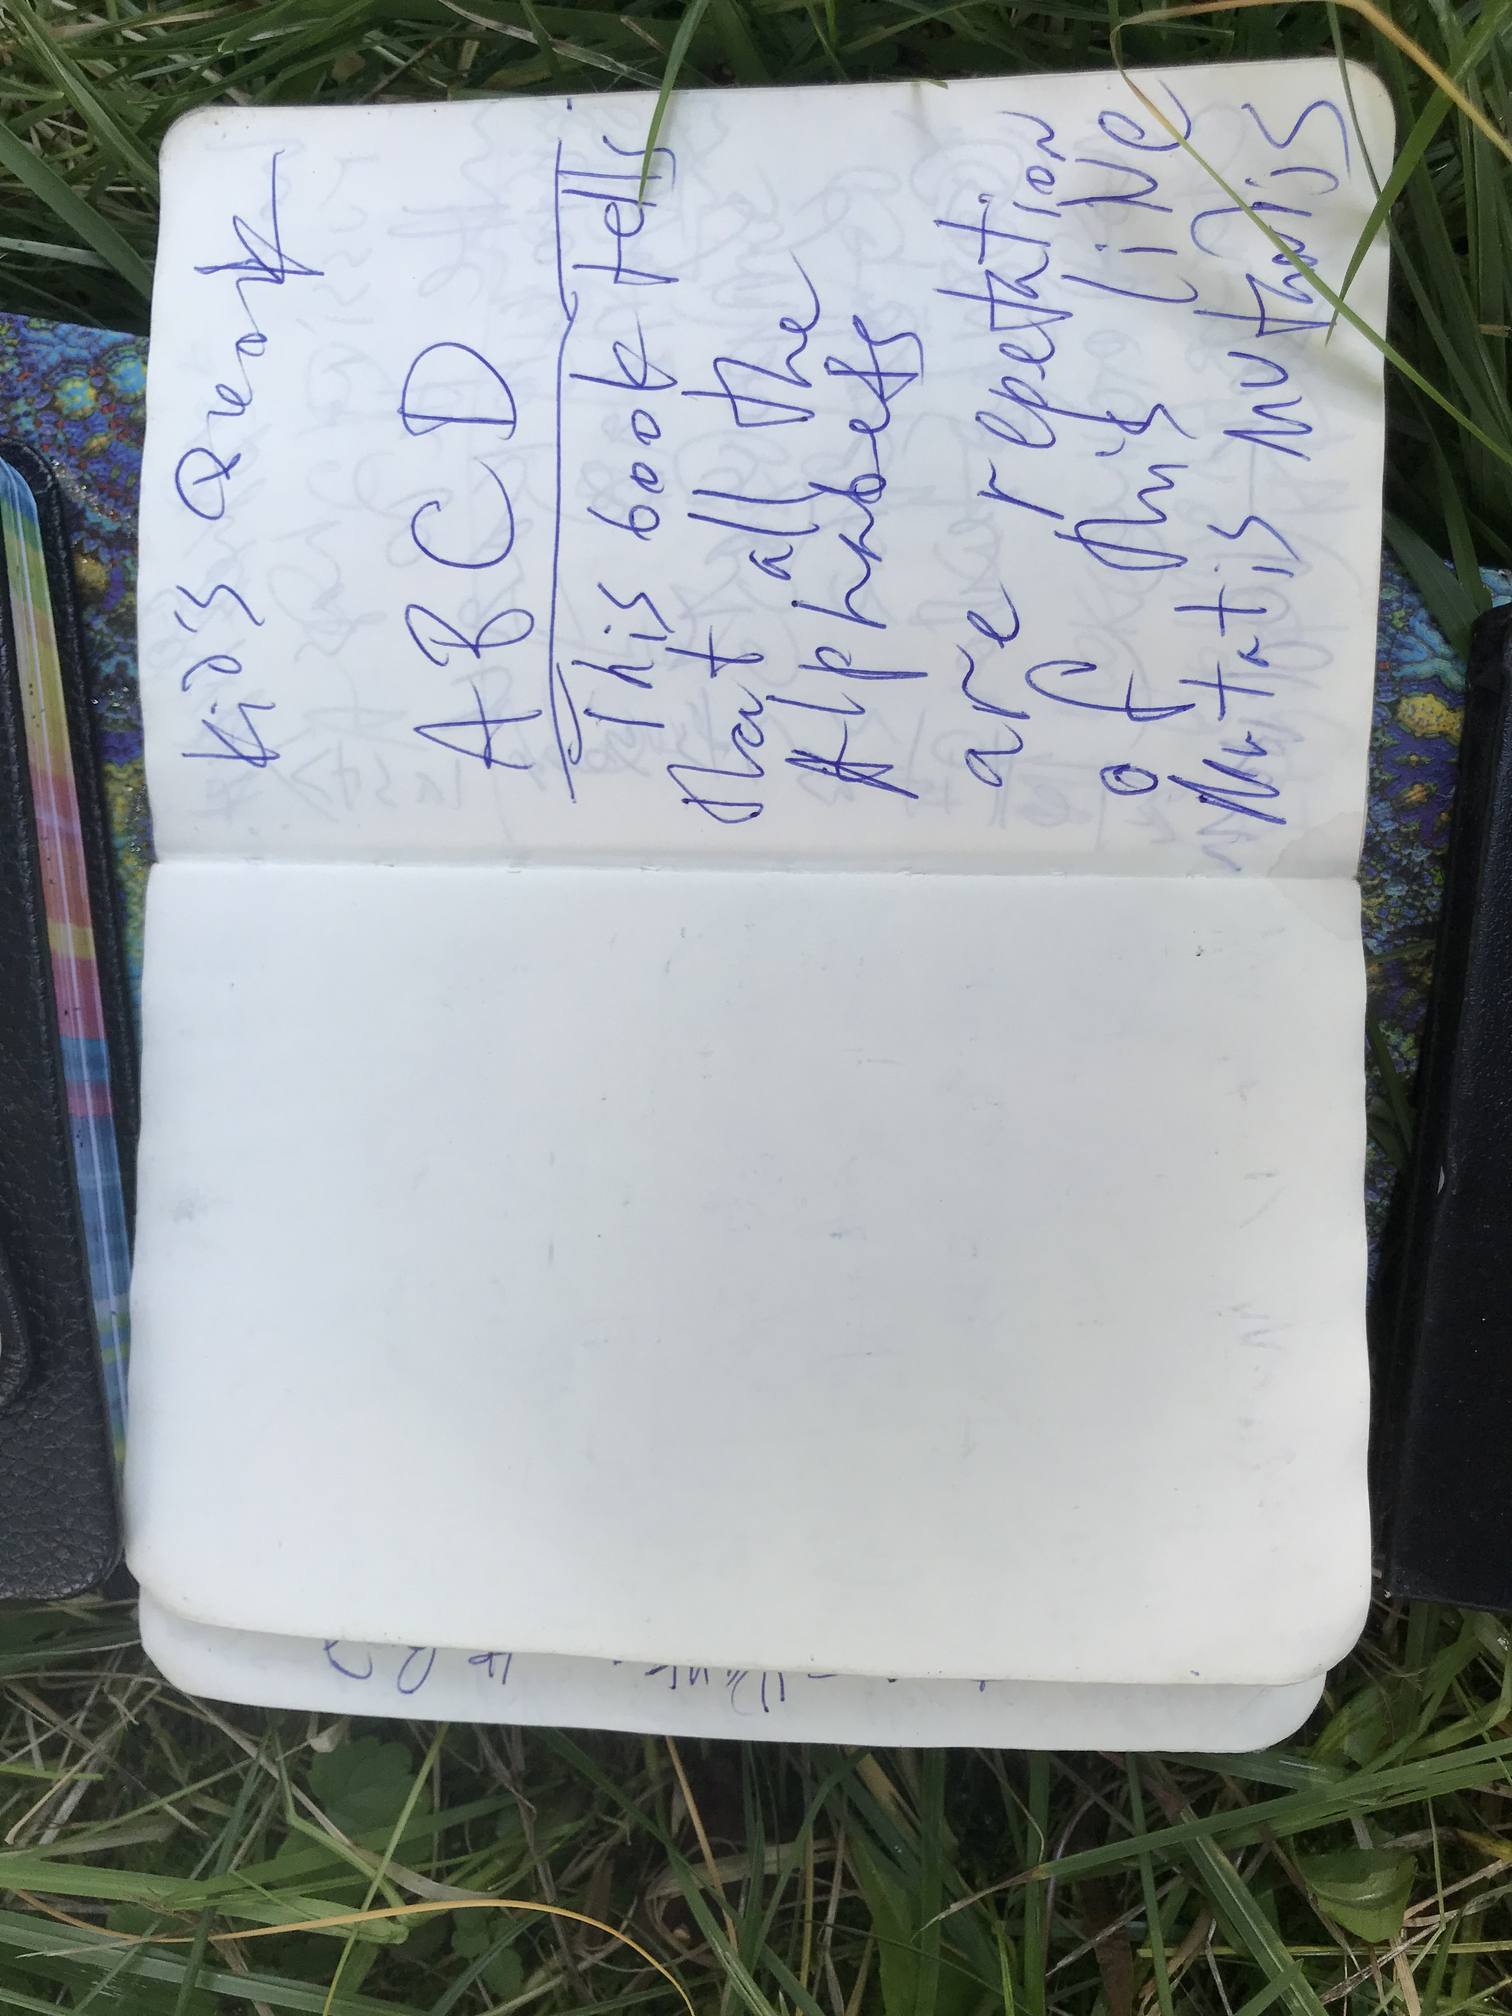 Kid's Qeark
A B C D
This book tells
that all the
Alphabets
are repetation
of this line
Mutatis Mutandis